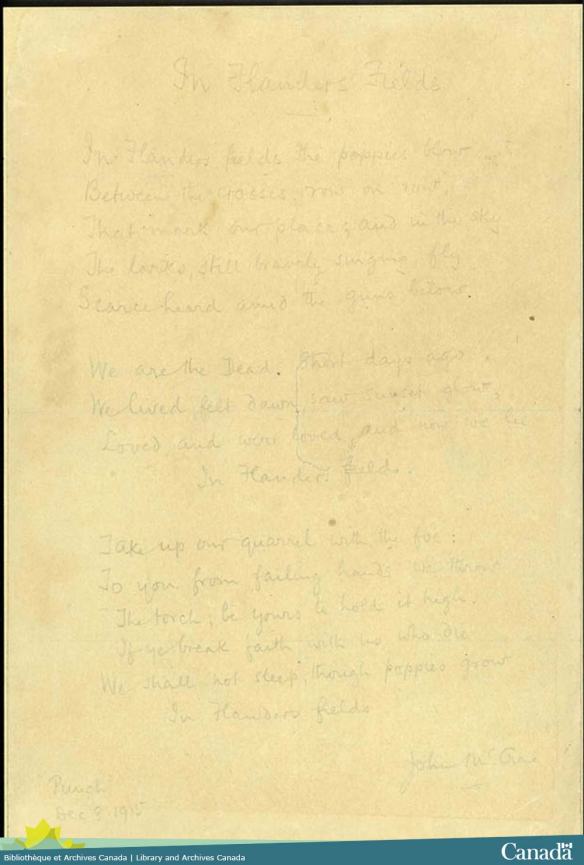 In Flanders Fields
In Flanders fields the poppies blow
Between the crosses, row on row,
That mark our place; and in the sky
The larks, still bravely singing, fly
Scarce heard amid the guns below.
We are the Dead. Short days ago
We lived, felt dawn, saw sunset glow,
Loved and were loved, and now we lie
In Flanders fields.
Take up our quarrel with the foe:
To you from failing hands we throw
The torch; be yours to hold it high.
If ye break faith with us who die
We shall not sleep, though poppies grow
In Flanders fields
John McCrae
Punch
Dec 8 1915
Bibliothèque et Archives Canada | Library and Archives Canada
Canada